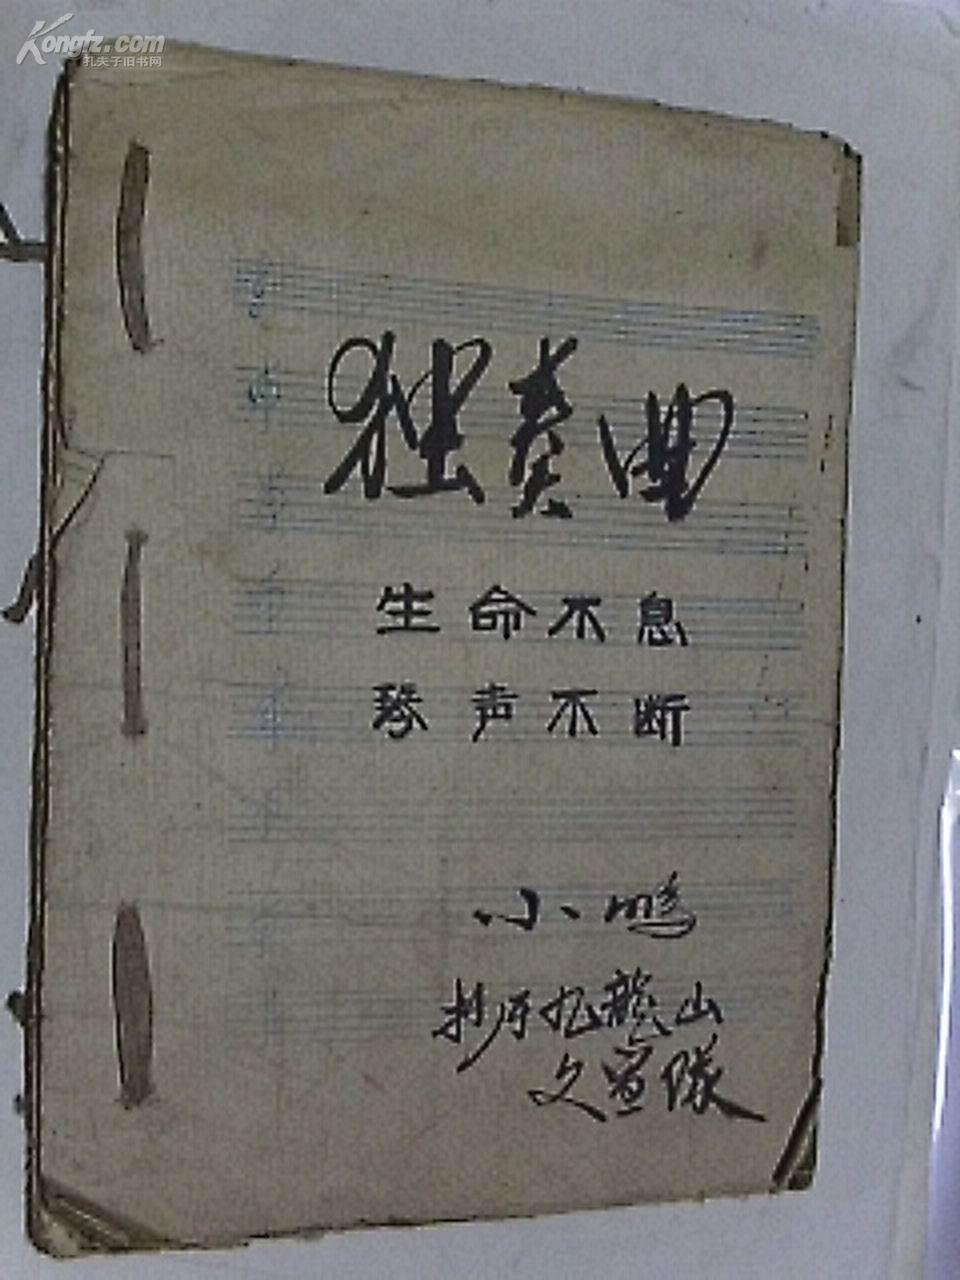 Kongfz.com
孔夫子旧书网
独奏曲
生命不息
琴声不断
小鹏
抄于九龙山
文宣队